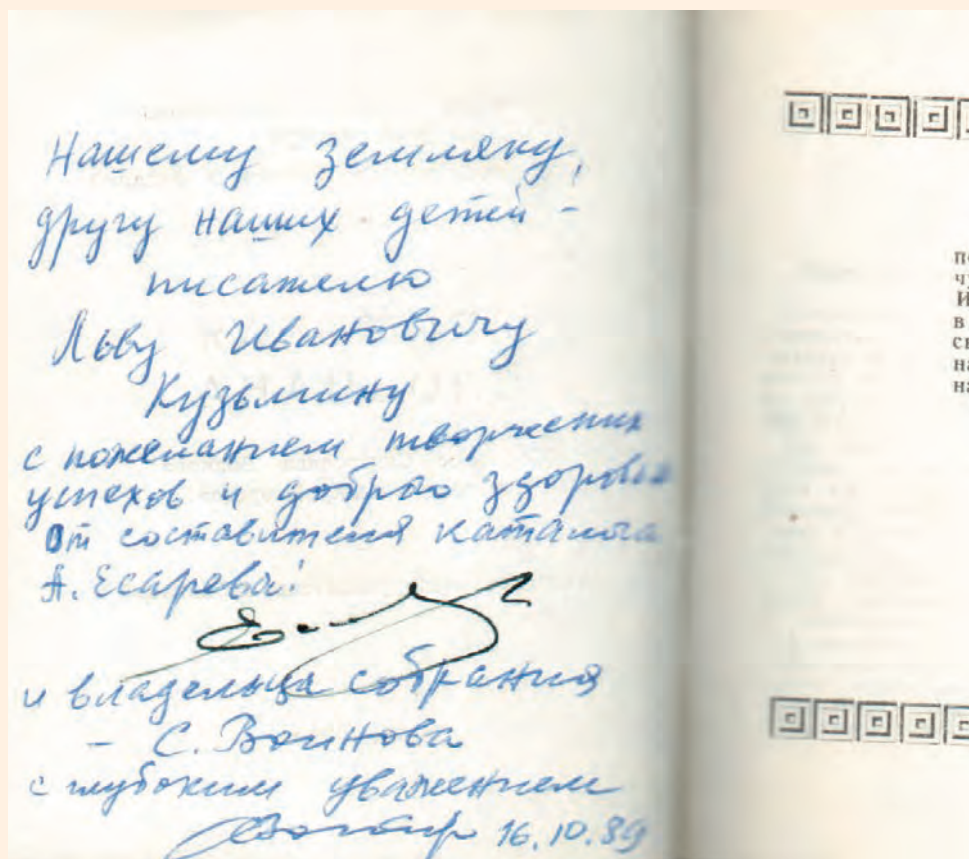 Нашему земляку,
другу наших детей –
писателю
Льву Ивановичу
Кузьмину
с пожеланием творческих
успехов и доброго здоровья
от составителя каталога
А. Есарева!
и владельца собрания
– С. Воинова
с глубоким уважением
16.10.89